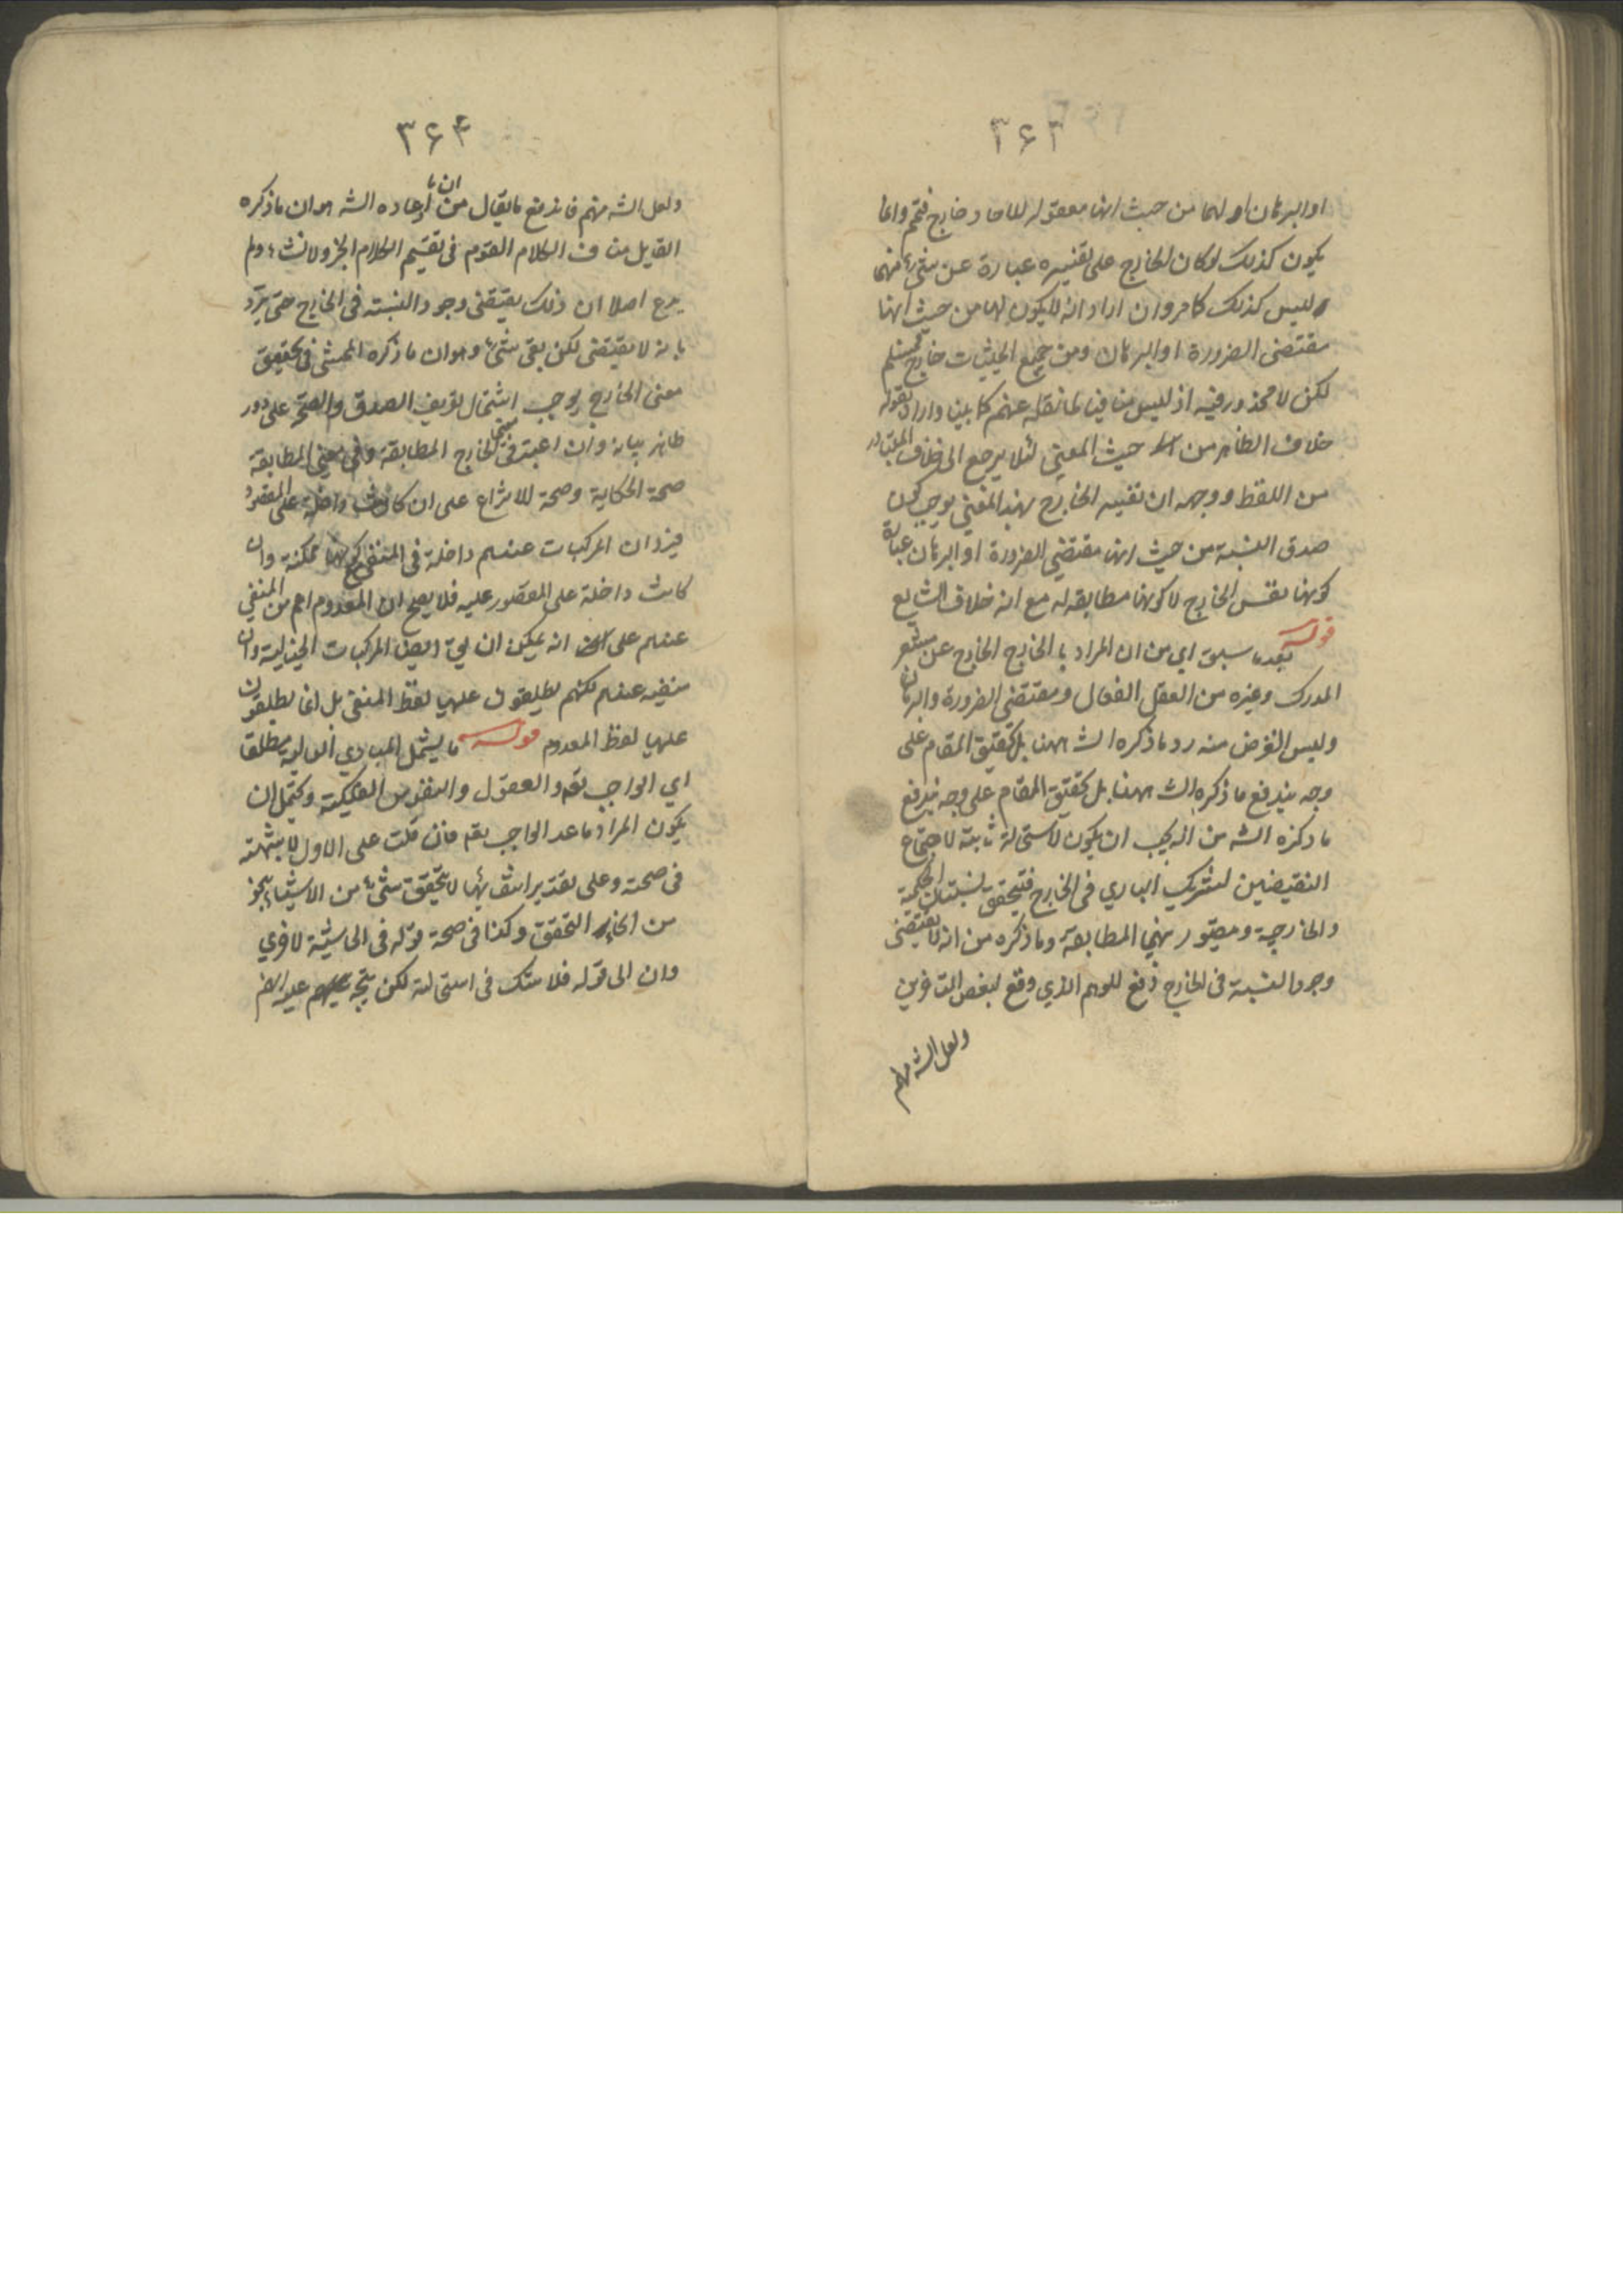 ٣۶٣
او البرهان او لهما من حيث انها معقوله للاحاد خارج فتم وانما
يكون كذلك لو كان الخارج على تفسيره عبارة عن شيء منهما
وليس كذلك كما مر وان اراد انه لا يكون لهما من حيث انها
مقتضى الضرورة او البرهان ومن جميع الحيثيات خارج فمسلم
لكن لا محذور فيه اذ ليس منافيا لما نقله عنهم كما بينا واراد بقوله
خلاف الظاهر من حيث المعنى لئلا يرجع الى خلاف المتبادر
من اللفظ ووجهه ان تفسير الخارج بهذا المعنى يوجب كون
صدق النسبة من حيث انها مقتضى الضرورة او البرهان عبارة
كونها نفس الخارج لا كونها مطابقه له مع انه خلاف الشايع
قوله بعد ما سبق اي من ان المراد با الخارج الخارج عن مشعر
المدرك وغيره من العقل الفعال ومقتضى الضرورة والبرهان
وليس الغرض منه رد ما ذكره الشـ ههنا بل تحقيق المقام على
وجه يندفع ما ذكره الشـ ههنا بل تحقيق المقام على وجه يندفع
ما ذكره الشه من انه يجب ان يكون لاستحالة ثابتة لاجتماع
النقيضين لشريك الباري في الخارج فيتحقق نسبتان الحكمية
والخارجية ويتصور بينهما المطابقة وما ذكره من انه لا يقتضى
وجود النسبة في الخارج دفع للوهم الذي وقع لبعض المتاخرين
ولعل الشه منهم
٣۶۴
ولعل الشه منهم فاندفع ما يقال من ان ما ارعاده الشه هو ان ما ذكره
القايل مناف الكلام القوم في تقسيم الكلام الخبر والانشاء ولم
يدع اصلا ان ذلك يقتضى وجود النسبة في الخارج حتى يرد
بانه لا يقتضى لكن بقى شيء وهو ان ما ذكره المحشى في تحقيق
معنى الخارج يوجب اشتمال تعريف الصدق والصحة على دور
ظاهر بيانه وان اعتبر في الخارج المطابقة وفي معنى المطابقة
صحة الحكاية وصحة الانتزاع على ان كانت داخلة على المقصود
فيرد ان المركبات عندهم داخلة في المنفي مع كونها ممكنة وان
كانت داخلة على المقصور عليه فلا يصح ان المعدوم اعم من المنفي
عندهم على انه يمكن ان يق ايضا المركبات الخيالية وان
منفيه عندهم لكنهم يطلقون عليها لفظ المنفى بل انما يطلقون
عليها لفظ المعدوم قوله ما يشمل المبادي العالية مطلقا
اي الواجب تعه والعقول والنفوس الفلكية ويحتمل ان
يكون المراد ما عدا الواجب تعه فان قلت على الاول لا شبهة
في صحته وعلى تقدير انتفائها لا يتحقق شيء من الاشياء بنحو
من انحاء التحقق وكذا في صحة قوله في الحاشية لاخرى
وان الى قوله فلا شك في استحالته لكن يتجه عليه انه